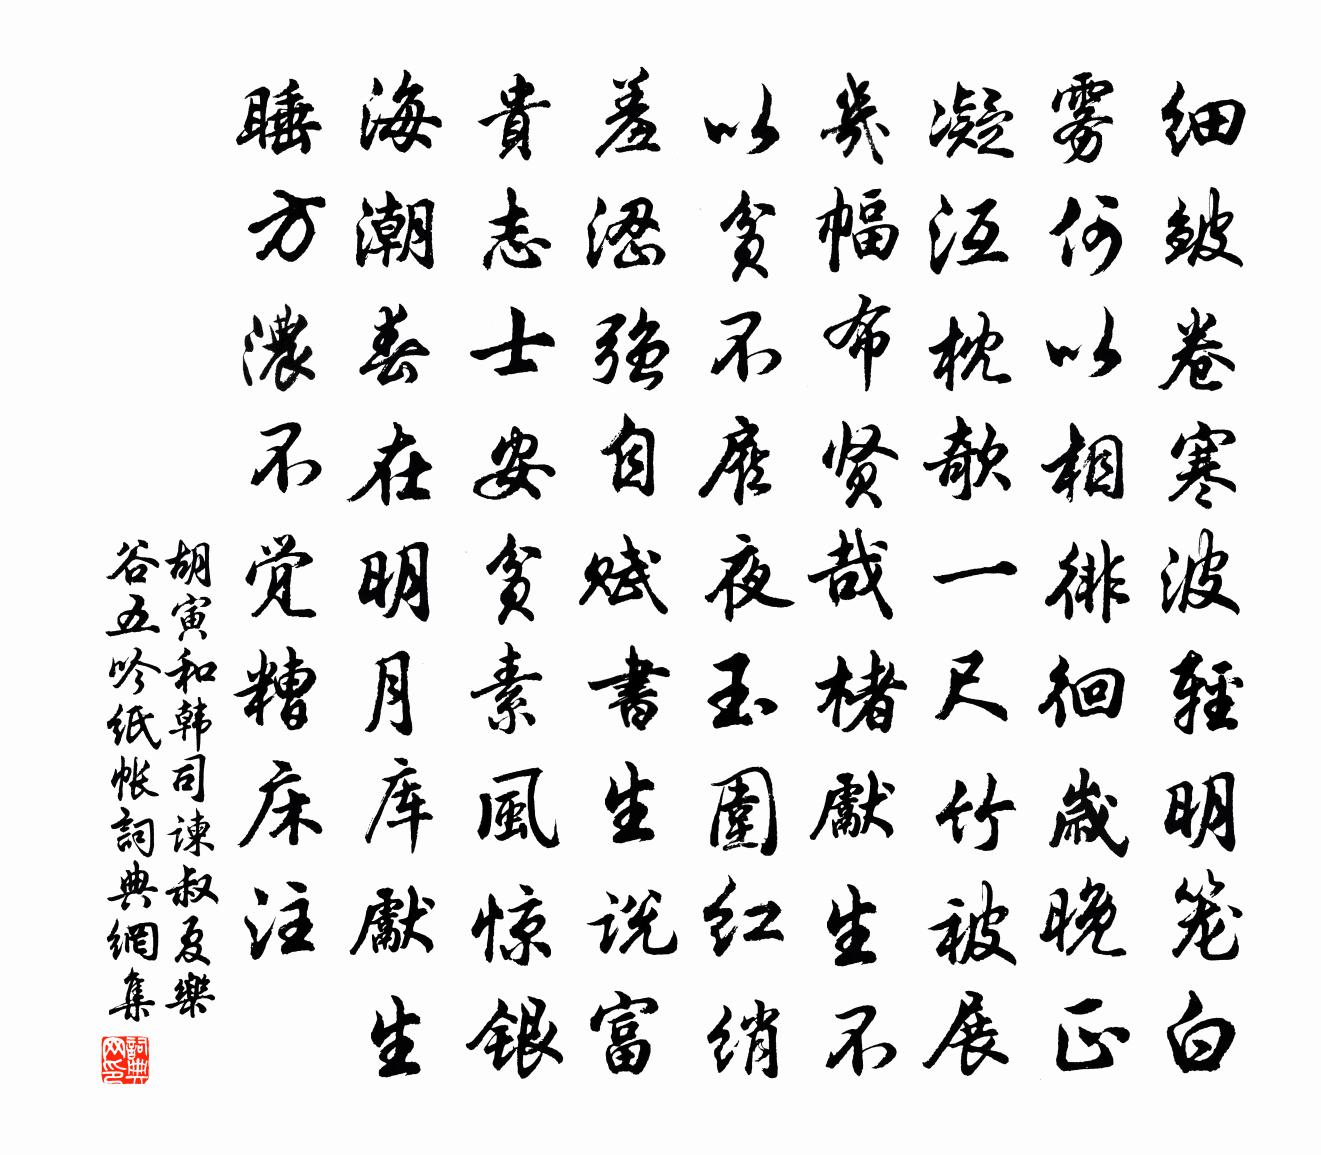 细皱卷寒波輕明笼白
雾何以相徘徊歲晚正
凝沍枕欹一尺竹被展
幾幅布贤哉楮獻生不
以贫不夜玉圍红绡
羞涩强自赋書生说富
貴志士安贫素風惊银
海潮春在明月库獻生
睡方濃不觉糟床注
胡寅和韩司谏叔夏樂
谷五吟纸帐詞典網集
詞典网印